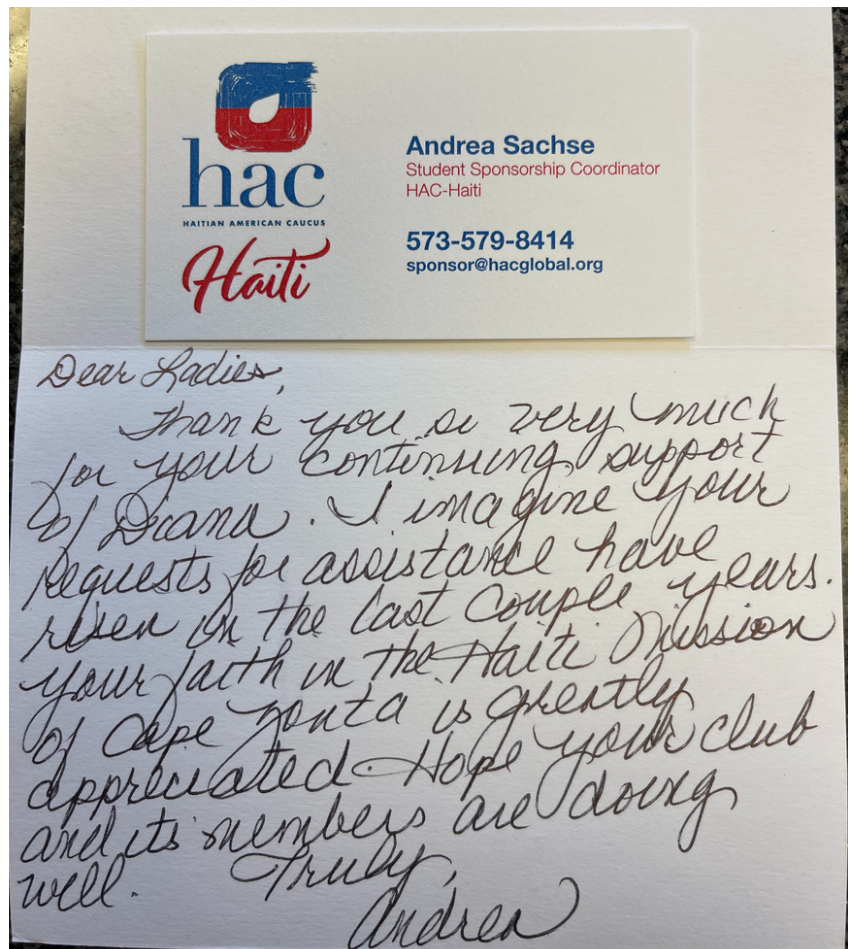 hac
HAITIAN AMERICAN CAUCUS
Haiti
Andrea Sachse
Student Sponsorship Coordinator
HAC-Haiti
573-579-8414
sponsor@hacglobal.org
Dear Ladies,
Thank you so very much
for your continuing support
of Diana. I imagine your
requests for assistance have
risen in the last couple years.
your faith in the Haiti Mission
of Cape Zonta is greatly
appreciated. Hope your club
and its members are doing
well. Truly,
Andrea